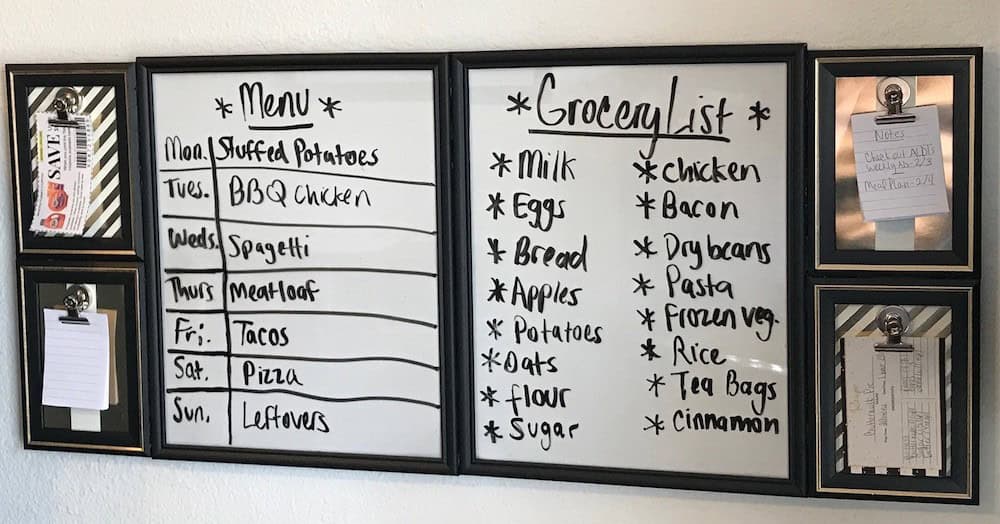 SAVE
* Menu *
Mon. Stuffed Potatoes
Tues. BBQ Chicken
Weds. Spagetti
Thurs Meatloaf
Fri. Tacos
Sat. Pizza
Sun. Leftovers
* Grocery List *
* Milk
* Eggs
* Bread
* Apples
* Potatoes
* Oats
* flour
* Sugar
* chicken
* Bacon
* Dry beans
* Pasta
* Frozen veg.
* Rice
* Tea Bags
* Cinnamon
Notes
Check out ALDI's
weekly ad - 2/3
Meal Plan - 2/4